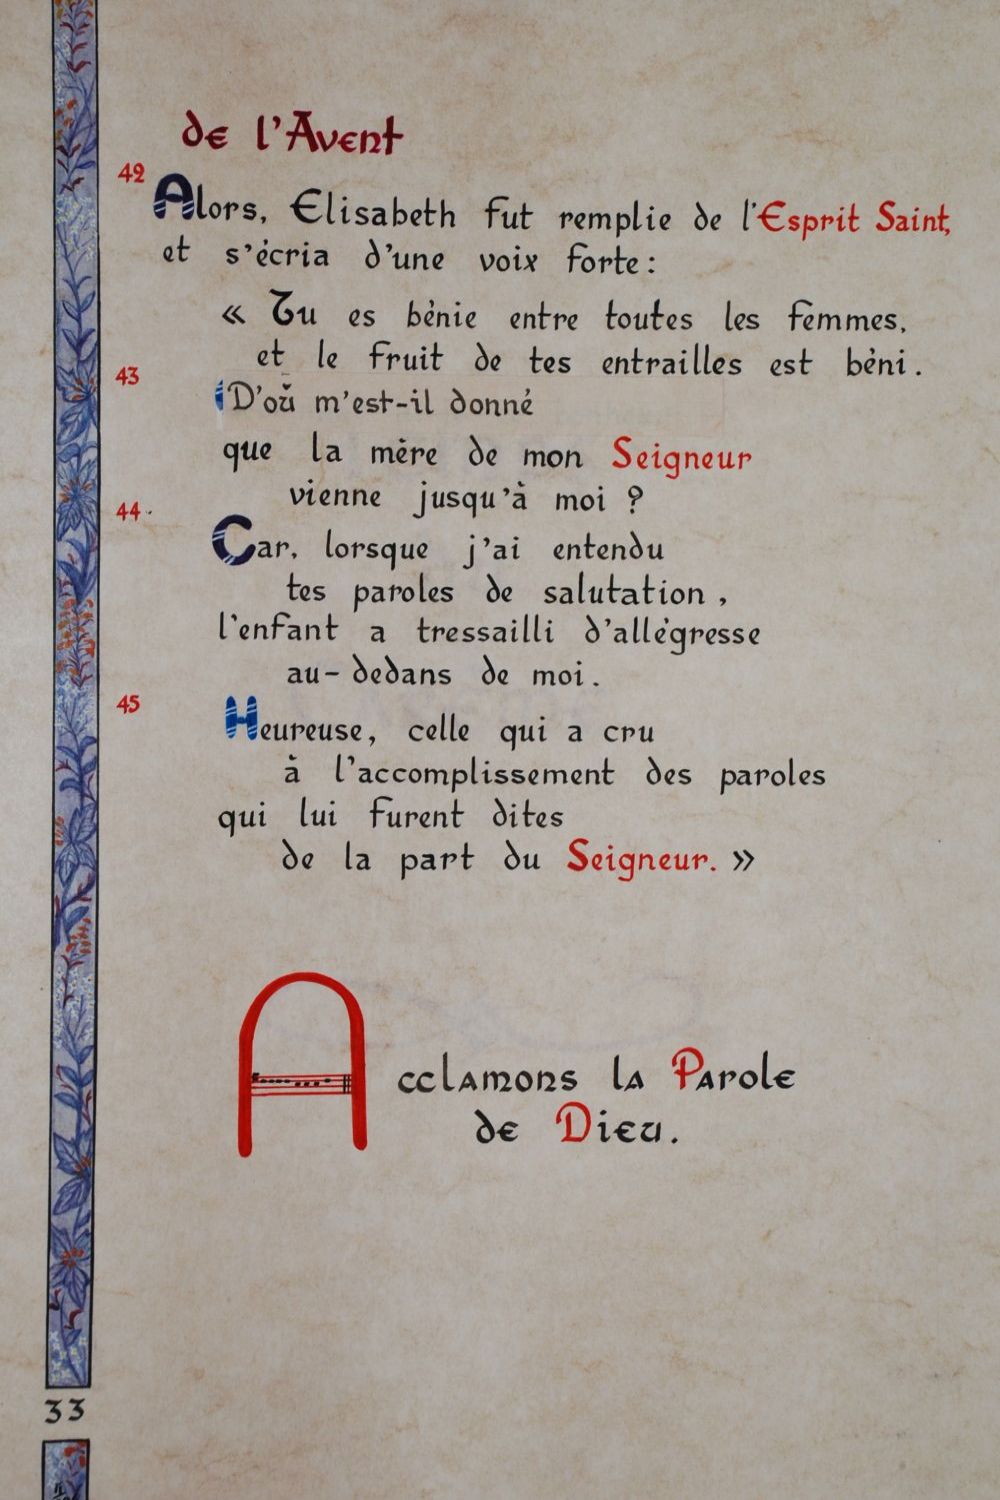 de l'Avent
42
Alors, Elisabeth fut remplie de l'Esprit Saint,
et s'écria d'une voix forte :
« Tu es bénie entre toutes les femmes,
et le fruit de tes entrailles est béni.
43
D'où m'est-il donné
que la mère de mon Seigneur
vienne jusqu'à moi ?
44
Car, lorsque j'ai entendu
tes paroles de salutation,
l'enfant a tressailli d'allégresse
au-dedans de moi.
45
Heureuse, celle qui a cru
à l'accomplissement des paroles
qui lui furent dites
de la part du Seigneur. »
Acclamons la Parole
de Dieu.
33